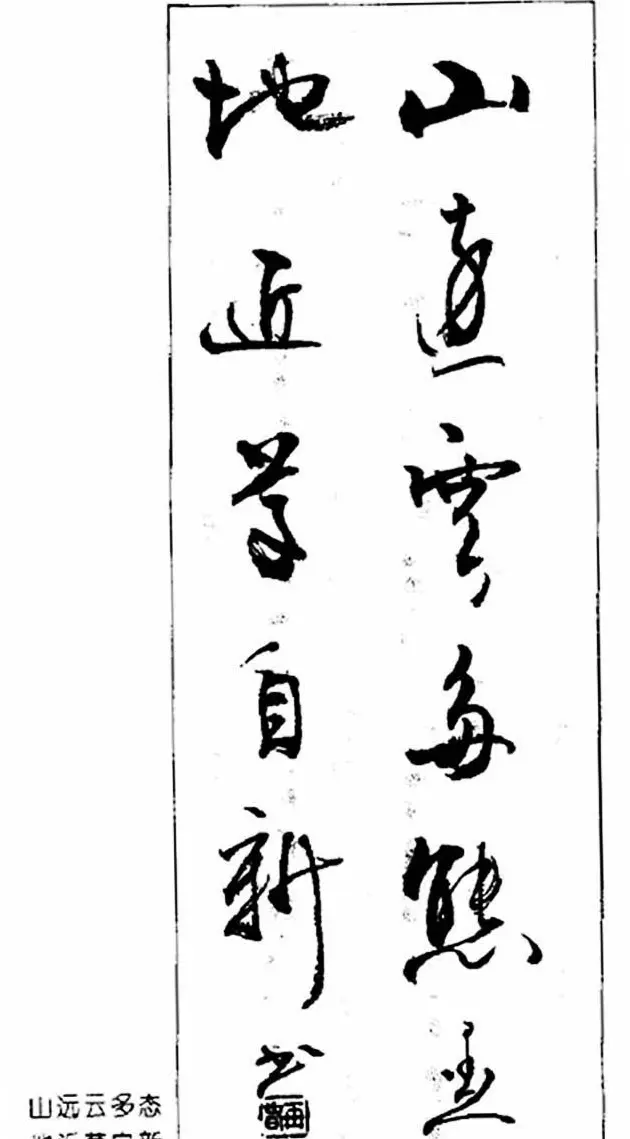 山遠雲多態
地近草自新
山远云多态